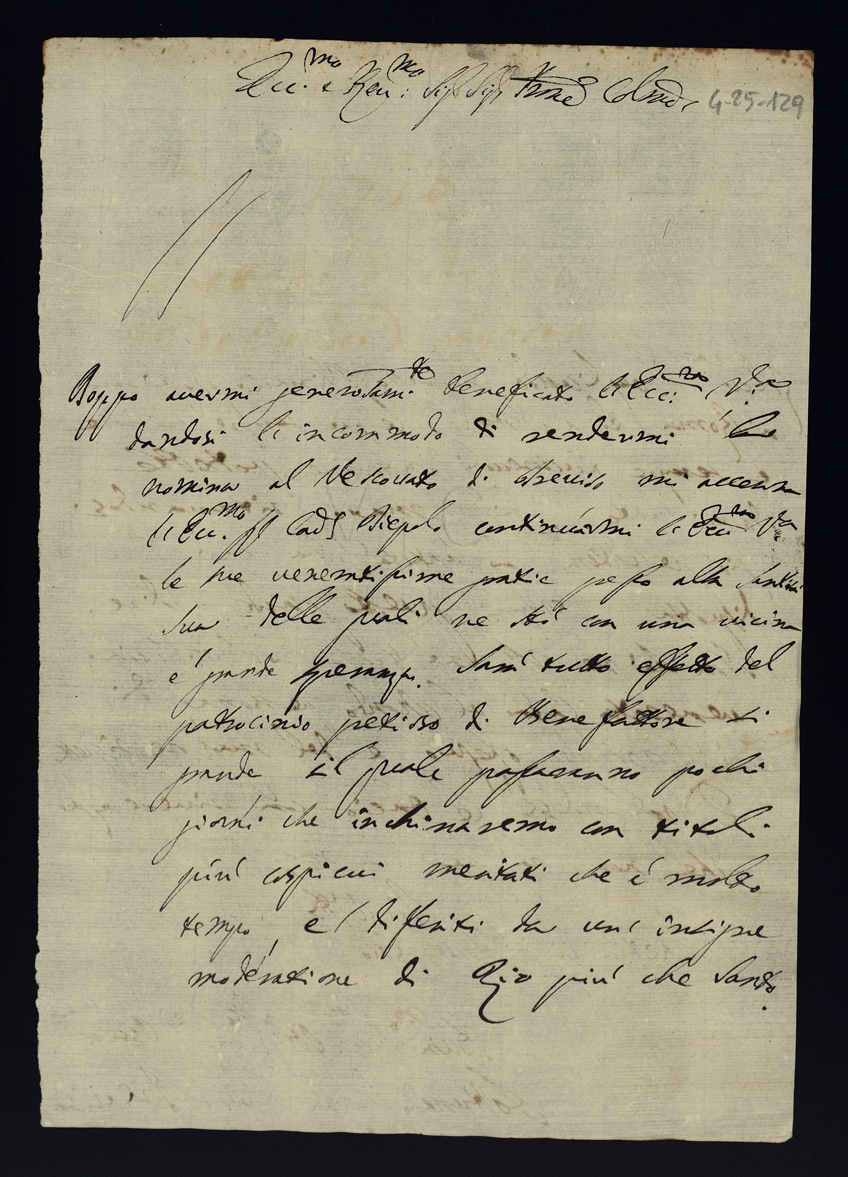 Ecc.mo e Rev.mo Sig.r Sig.r Prone Colmo
4-25-129
Doppo avermi generosam.te beneficato l'Ecc.za V.ra
dandosi l'incommodo di rendermi la
nomina al Vescovato di Treviso mi accenna
l'Ecc.mo Tiepolo continuarmi l'Ecc.za V.ra
le sue veneratissime gratie presso alla Santità
Sua delle quali ne stò con una vicina
e' grande speranza. Sarà tutto effetto del
patrocinio di Benefattore si
grande il quale passeranno pochi
giorni che inchinaremo con titoli
più cospicui meritati che è molto
tempo, e' differiti da un' insigne
moderatione di Pio più che Santo.